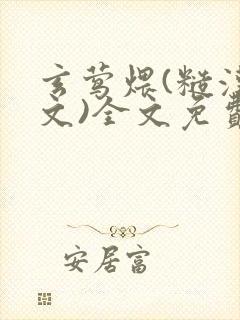 玄莺煨(糙汉
文)全文免费
安居富